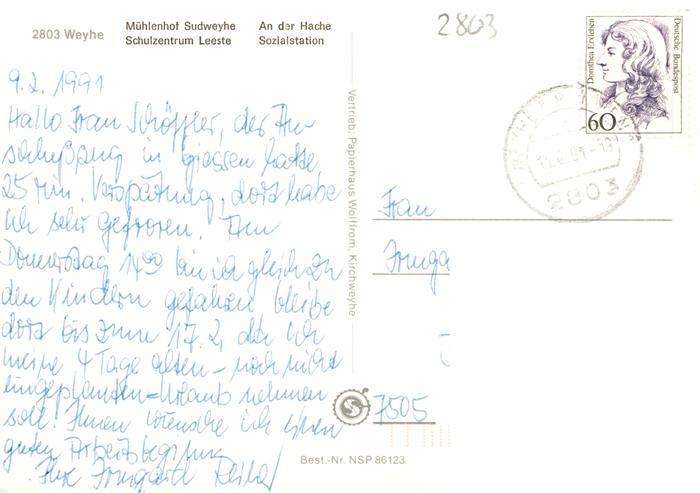 2803 Weyhe
Mühlenhof Sudweyhe An der Hache
Schulzentrum Leeste Sozialstation
2803
Dorothea Erxleben
Deutsche Bundespost
60
2803
9.2.1991
Hallo Frau Schöffler, der An-
schlußzug in Giessen hatte
25 Min. Verspätung, dort habe
ich sehr gefroren. Am
Donnerstag 14 bin ich gleich zu
den Kindern gefahren bleibe
dort bis zum 17.2, da ich
meine 4 Tage alten - noch nicht
eingeplanten - Urlaub nehmen
soll. Ihnen wünsche ich einen
guten Arbeitsbeginn
Ihre Irmgard
Vertrieb: Papierhaus Wolffrom, Kirchweyhe
Frau
Irmga
7505
Best.-Nr. NSP 86123